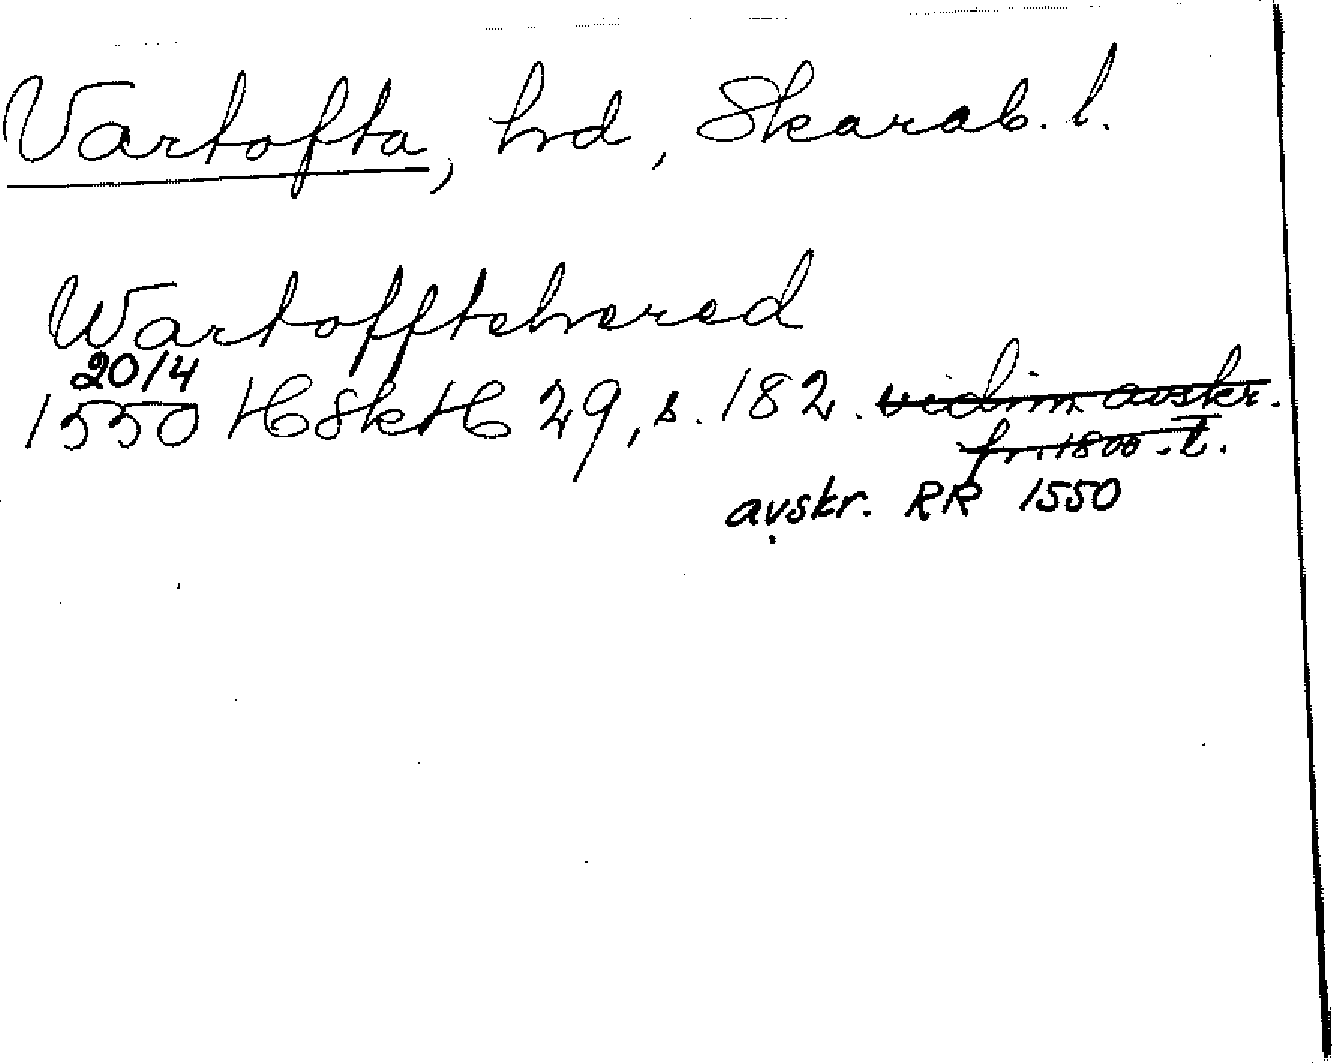 Vartofta, hd, Skarab. l.
Wartofftehered
20/4
1550 HSkH 29, s. 182. vidim. avskr.
fr. 1800-t.
avskr. RR 1550